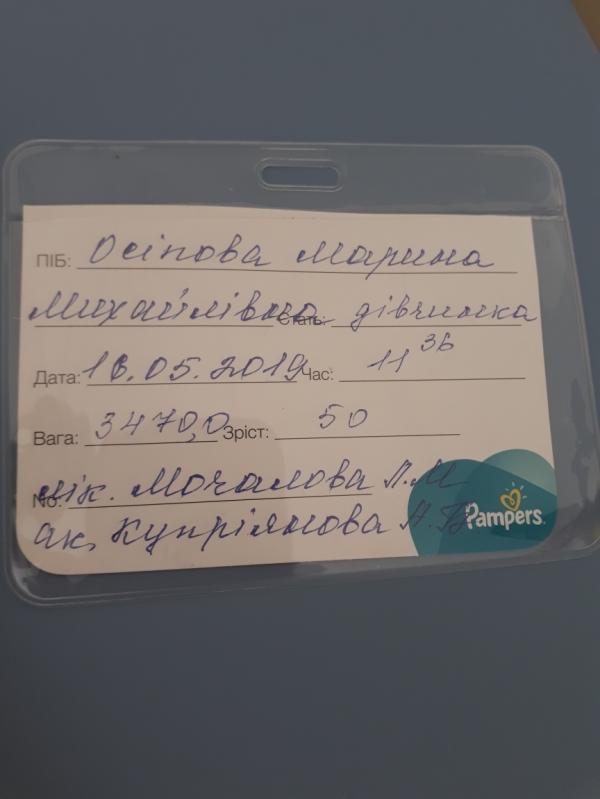 ПІБ: Осіпова Марина
Михайлівна Стать: дівчинка
Дата: 16.05.2019 Час: 11 36
Вага: 3470,0 Зріст: 50
No: лік. Мочалова Л.М
ак. Купріянова Н.В.
Pampers